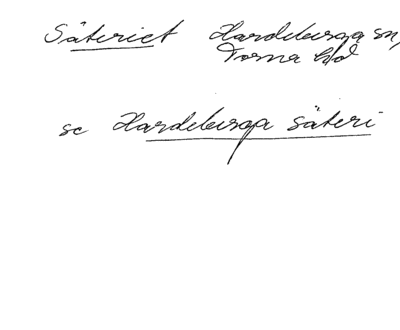 Säteriet Hardeberga sn,
Torna hd
se Hardeberga säteri